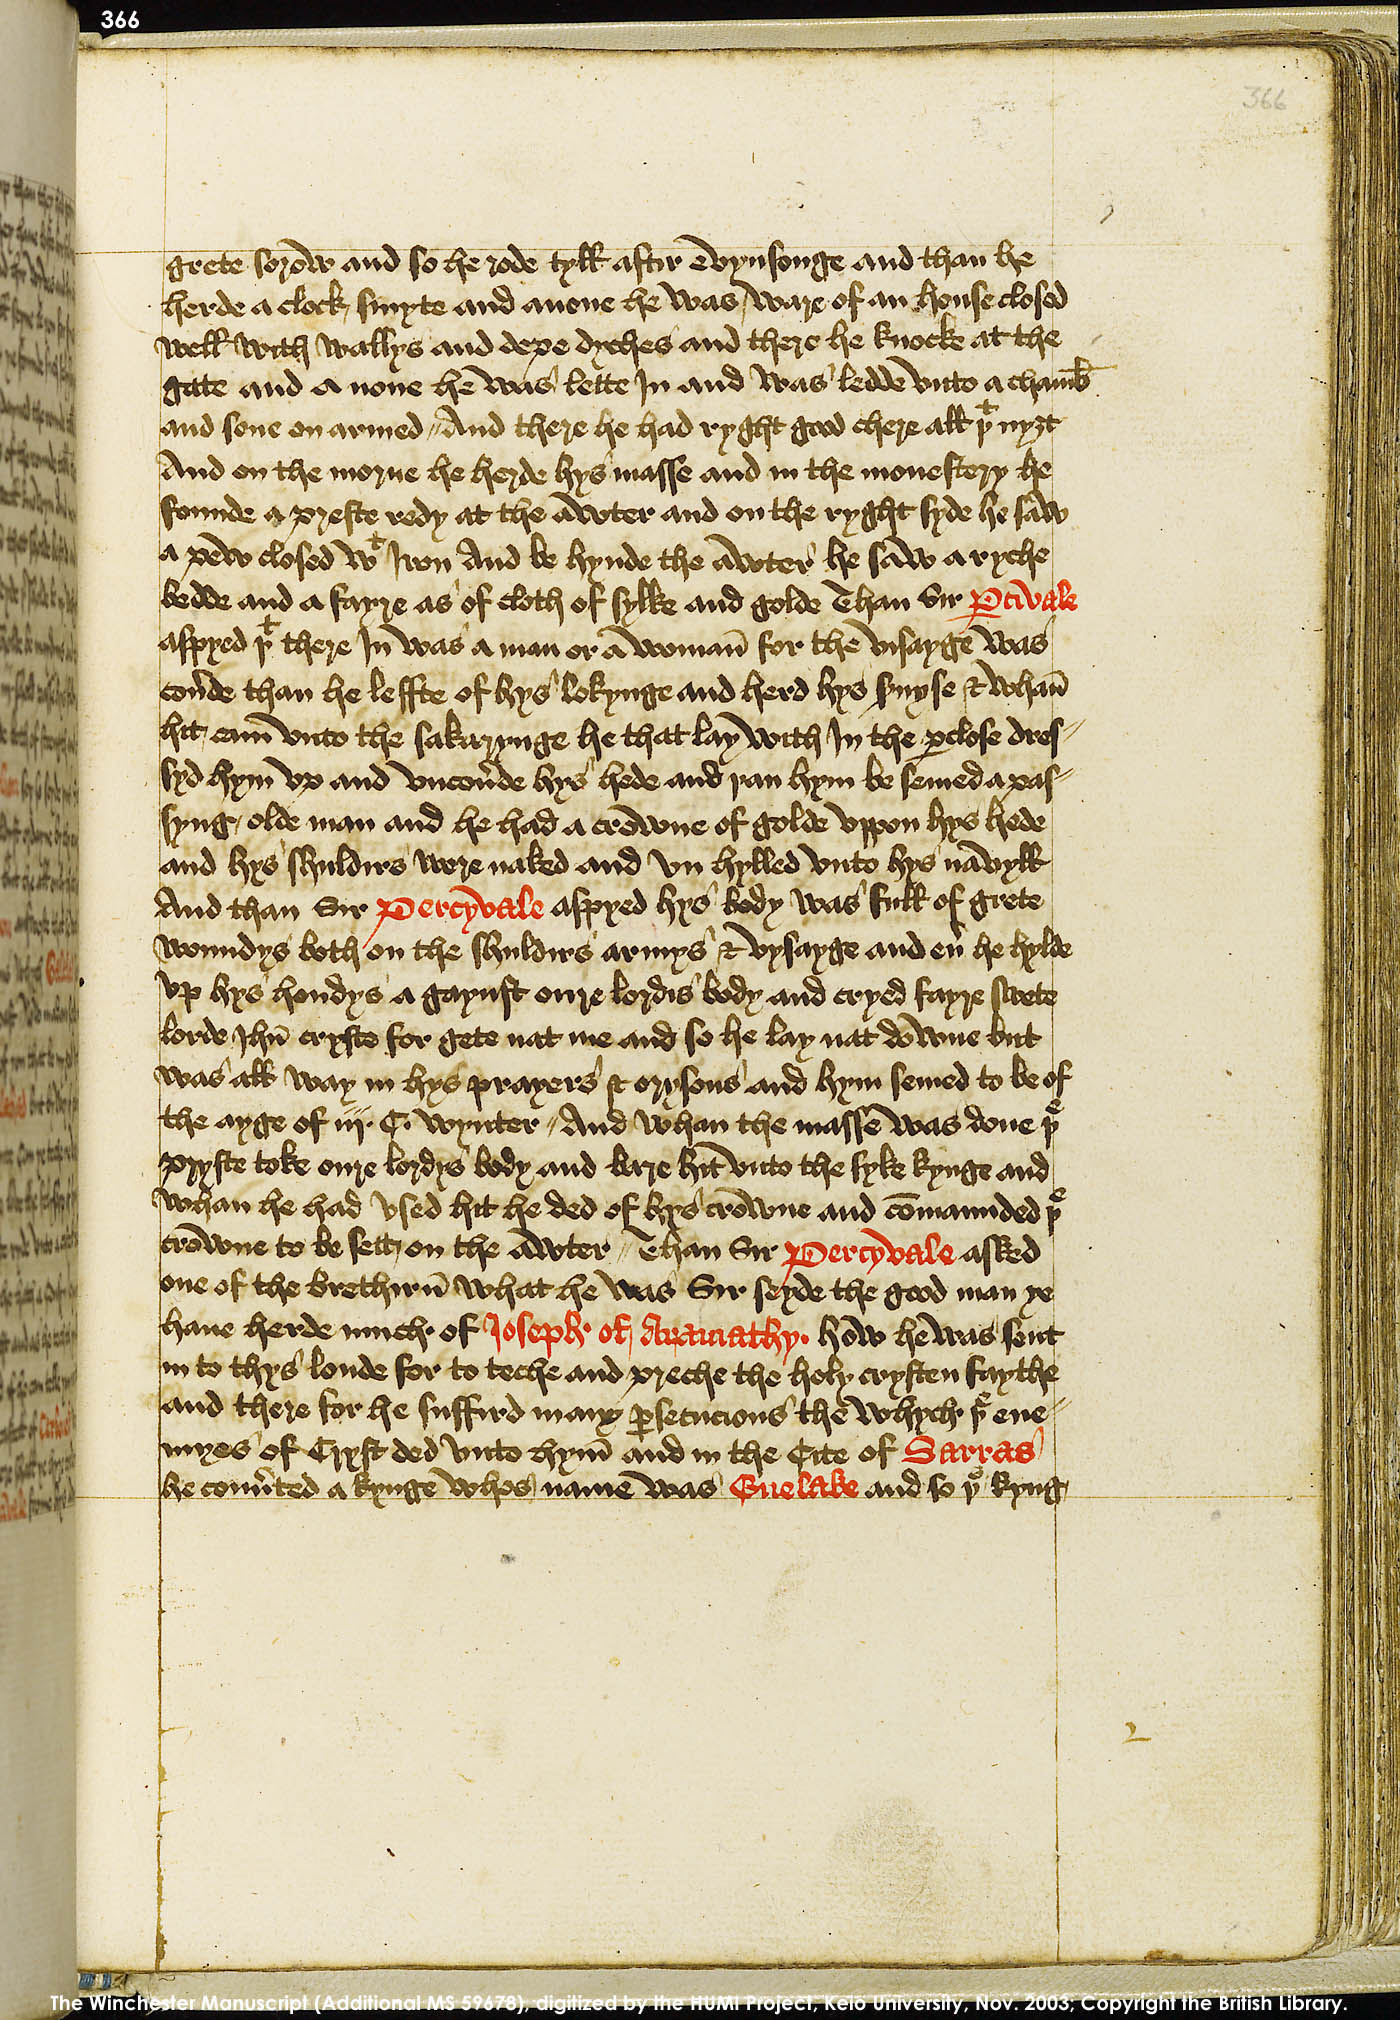 366
366
grete sorow and so he rode tyll aftir evynsonge and than he
herde a clock smyte and anone he was ware of an house closed
well with wallys and depe dyches and there he knocke at the
gate and a none he was lette In and was ledde vnto a chamb̄
and sone on armed // And there he had ryght good chere all þͭ nyȝt
And on the morne he herde hys masse and in the monestery he
founde a preste redy at the awter and on the ryght syde he saw
a pew closed wͭ Iron And be hynde the awter he saw a ryche
bedde and a fayre as of cloth of sylke and golde Than Sir P̱civale
aspyed þͭ there In was a man or a woman̄ for the visayge was
cou̾de than he leffte of hys lokynge and herd hys suyse & whan̄
hit cam̄ vnto the sakarynge he that lay with In the ꝑclose dres//
syd hym vp and vncou̾de hys hede and þan hym be semed a pas//
syng olde man and he had a crowne of golde vppon hys hede
and hys shuldirs were naked and vn hylled vnto hys navyll
And than Sir Percyvale aspyed hys body was full of grete
woundys both on the shuldirs armys & vysayge and eu̾ he hylde
vp hys hondys a gaynst oure lordis body and cryed fayre swete
lorde Ihū cryste for gete nat me and so he lay nat downe but
was all way in hys prayers & orysons and hym semed to be of
the ayge of iij. C. wynter // And whan the masse was done þͤ
pryste toke oure lordys body and bare hit vnto the syke kynge and
whan he had vsed hit he ded of hys crowne and cōmaunded þͤ
crowne to be sett on the awter // Than Sir Percyvale asked
one of the brethirn̄ what he was Sir seyde the good man ye
haue herde much of Joseph of Aramathy. how he was sent
in to thys londe for to teche and preche the holy crysten faythe
and there for he suffird many ꝑsecucions the whych þͤ ene//
myes of Cryst ded vnto hym̄ and in the Cite of Sarras
he conu̾ted a kynge whos name was Euelake and so þͤ kyng
The Winchester Manuscript (Additional MS 59678), digitized by the HUMI Project, Keio University, Nov. 2003; Copyright the British Library.